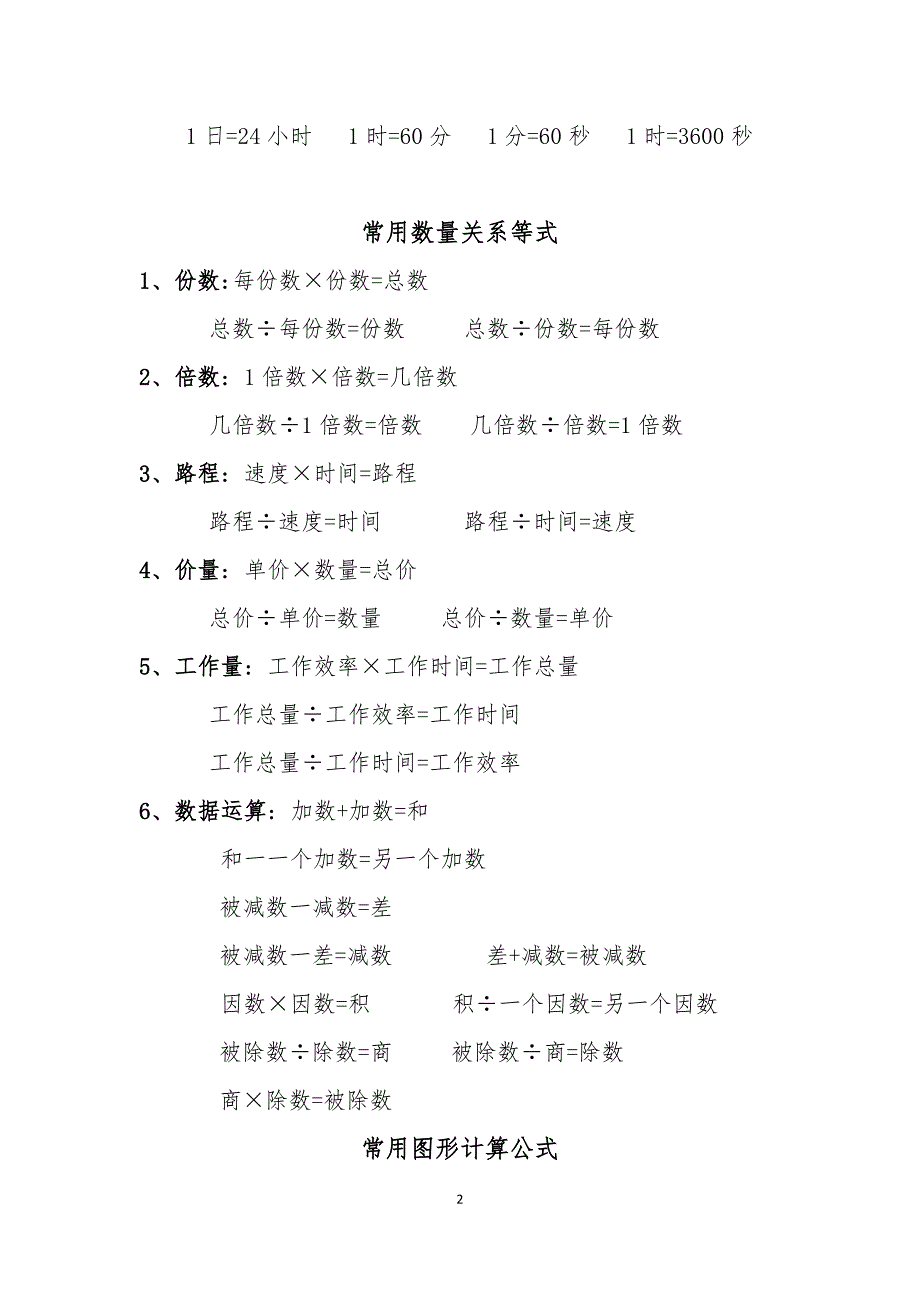 1日=24小时 1时=60分 1分=60秒 1时=3600秒
常用数量关系等式
1、份数:每份数×份数=总数
总数÷每份数=份数 总数÷份数=每份数
2、倍数：1倍数×倍数=几倍数
几倍数÷1倍数=倍数 几倍数÷倍数=1倍数
3、路程：速度×时间=路程
路程÷速度=时间 路程÷时间=速度
4、价量：单价×数量=总价
总价÷单价=数量 总价÷数量=单价
5、工作量：工作效率×工作时间=工作总量
工作总量÷工作效率=工作时间
工作总量÷工作时间=工作效率
6、数据运算：加数+加数=和
和一一个加数=另一个加数
被减数一减数=差
被减数一差=减数 差+减数=被减数
因数×因数=积 积÷一个因数=另一个因数
被除数÷除数=商 被除数÷商=除数
商×除数=被除数
常用图形计算公式
2